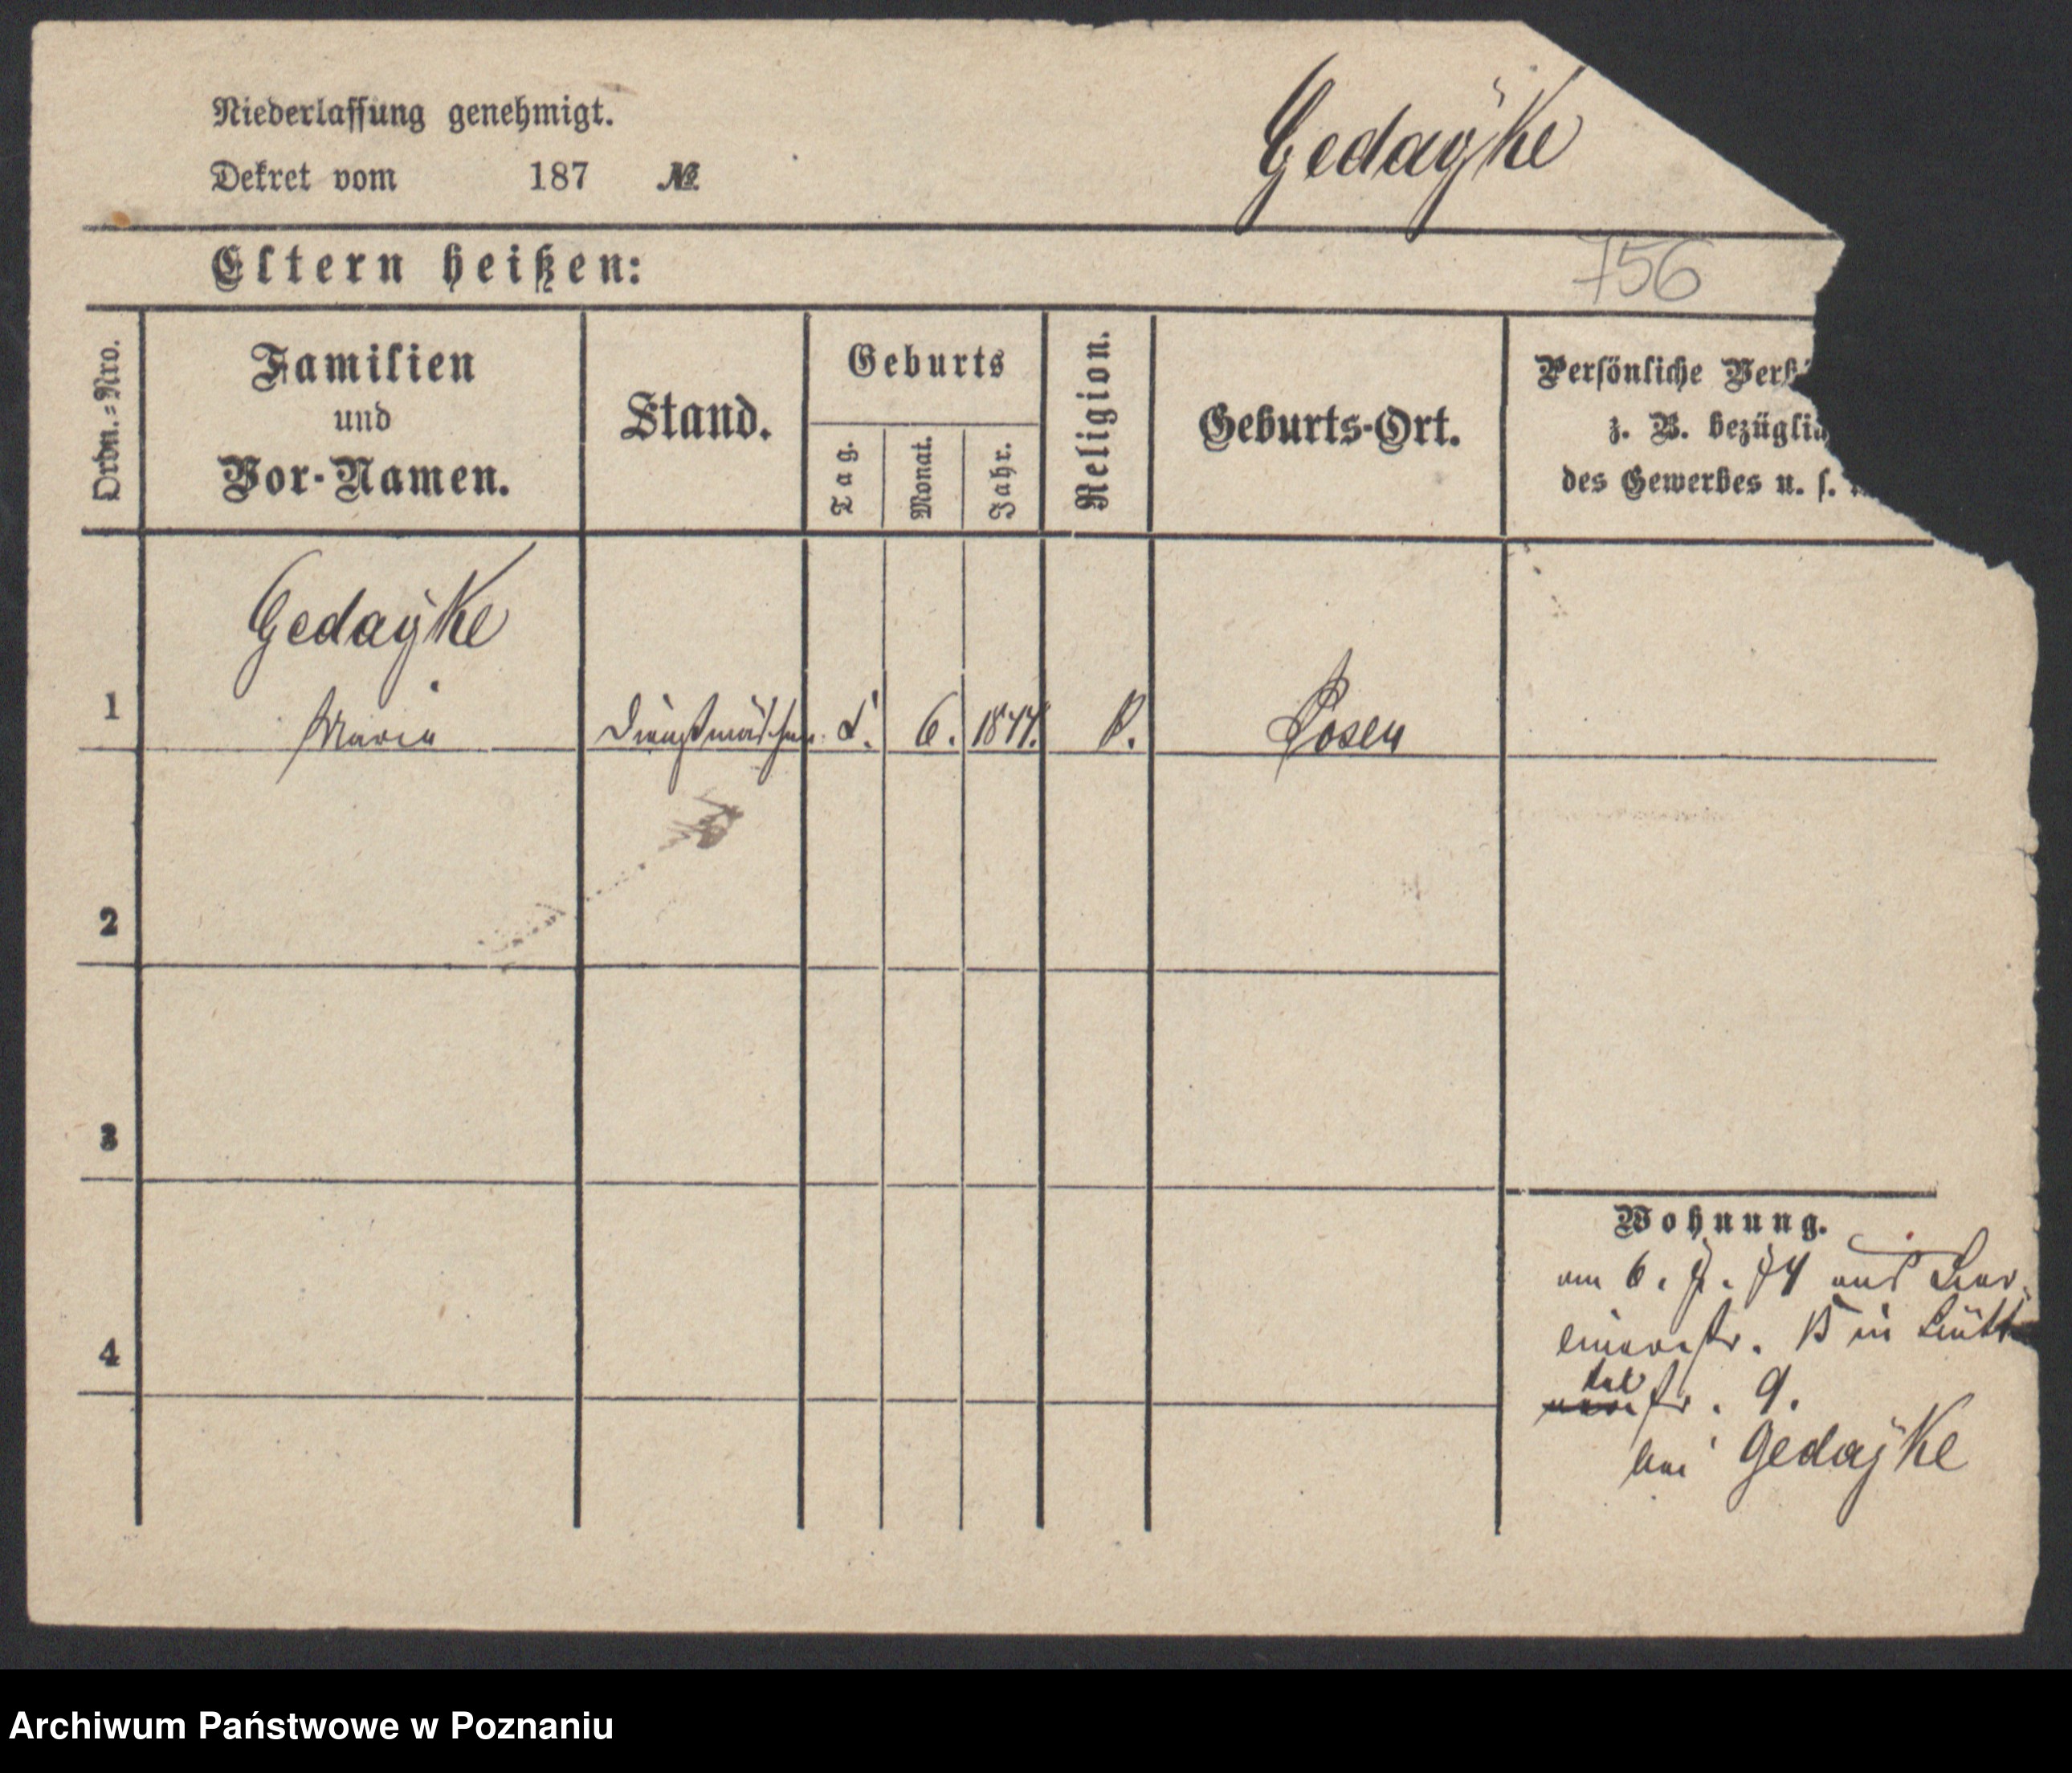 Niederlassung genehmigt.
Dekret vom 187 №
Gedaÿke
Eltern heißen:
756
Ordn.=Nro.
Familien
und
Vor-Namen.
Stand.
Geburts
Tag.
Monat.
Jahr.
Religion.
Geburts-Ort.
Persönliche
z. B.
des Gewerbes u. s.
Gedaÿke
1 Maria Dienstmädchen 6. K. Posen
2
3
4
Wohnung.
am 6. 7. 74 aus
str. 13 in
str. 9.
bei Gedaÿke
Archiwum Państwowe w Poznaniu